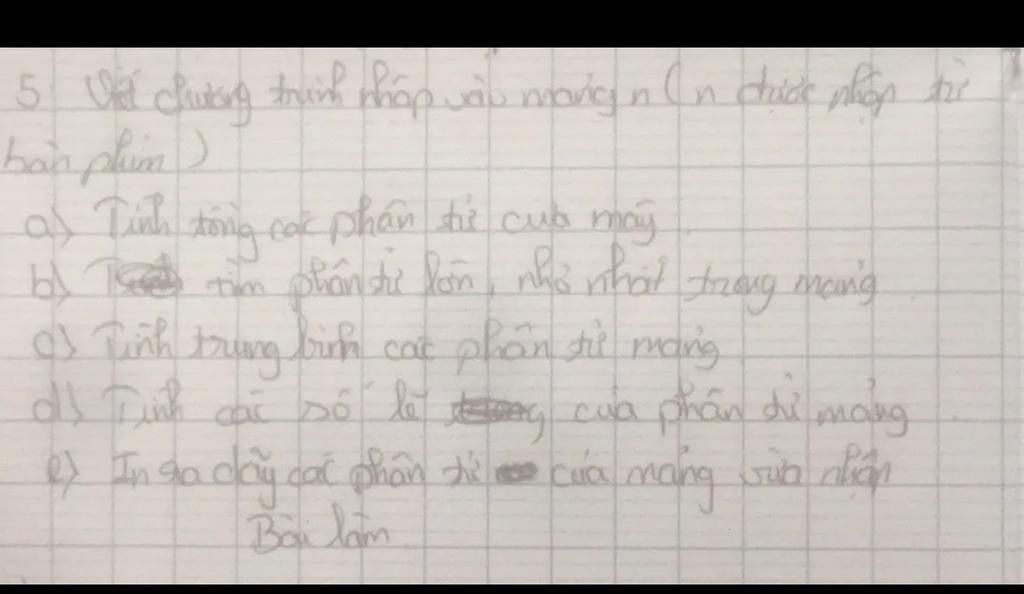 5 Viết chương trình nhập vào mảng n (n được nhập từ
bàn phím)
a) Tính tổng các phần tử của mảy
b) tìm phần tử lớn, nhỏ nhất trong mảng
c) Tính trung bình các phần tử mảng
d) Tính các số lẻ của phần tử mảng
e) In ra dãy các phần tử của mảng vừa nhập
Bài làm